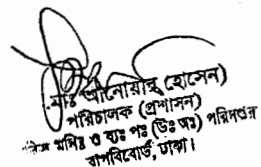 মোঃ আনোয়ার হোসেন)
পরিচালক (প্রশাসন)
ও ব্যঃ পঃ (উঃ অঃ) পরিদপ্তর
বাপবিবোর্ড, ঢাকা।